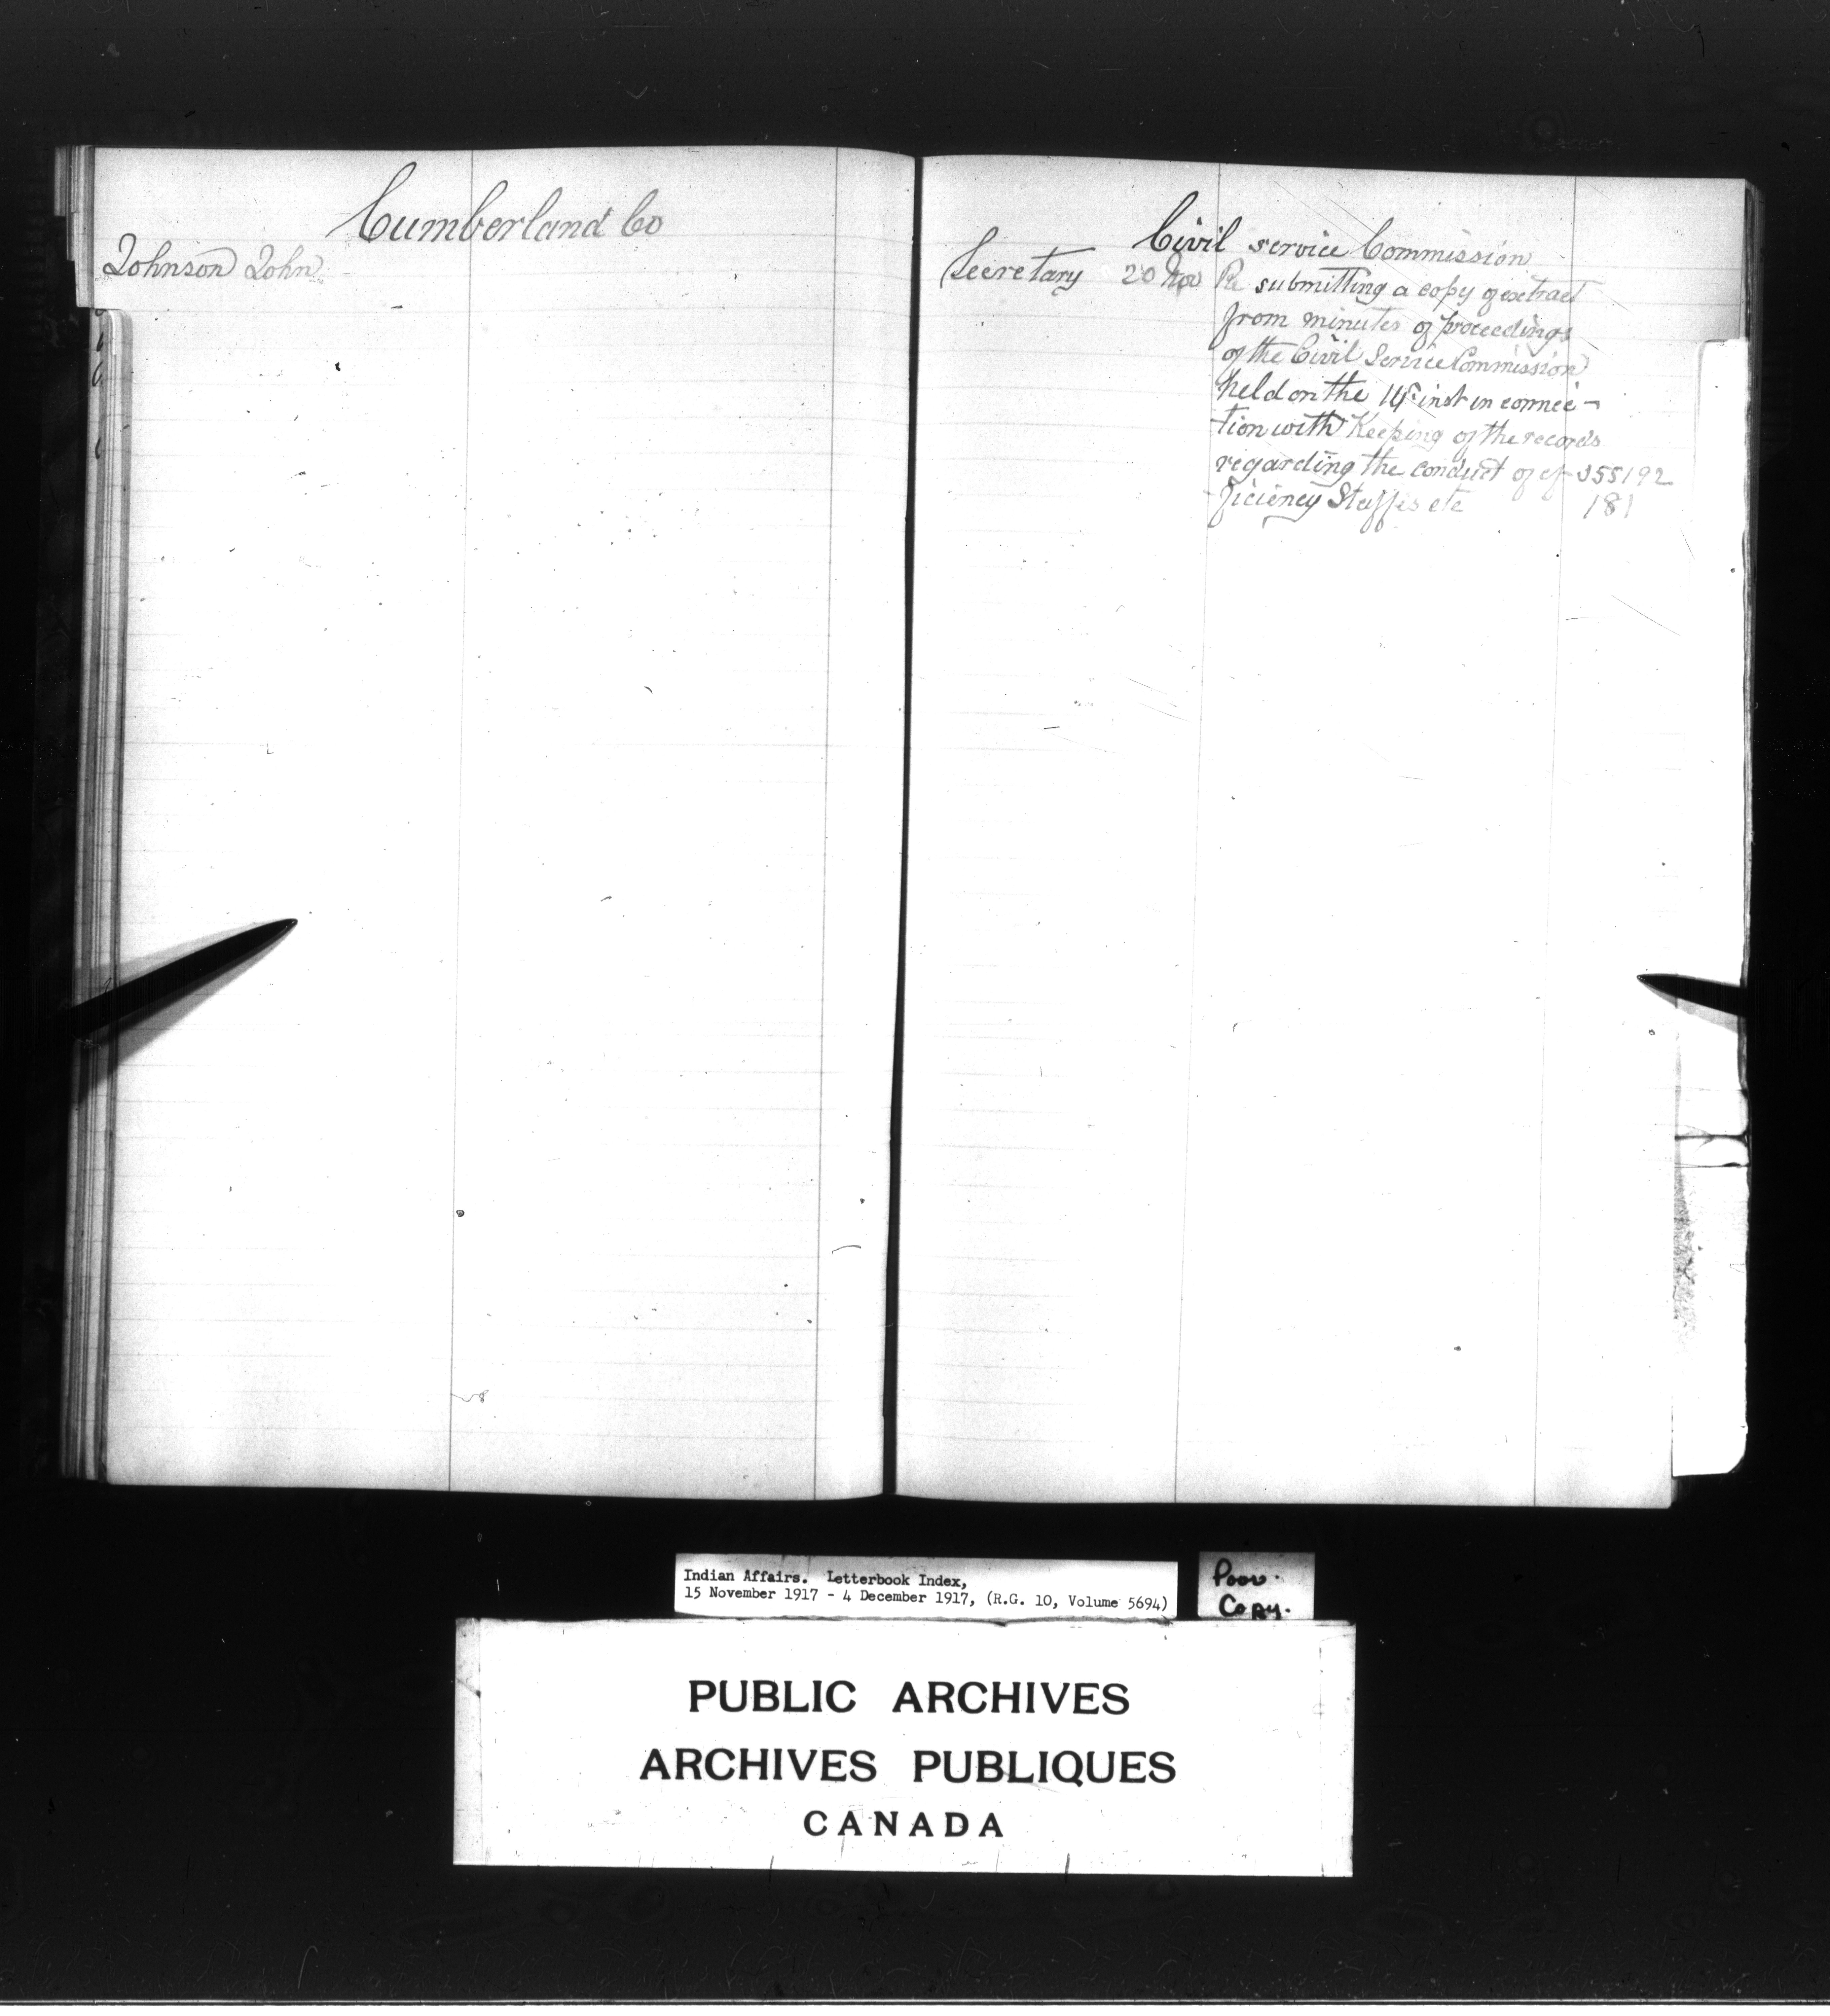 Cumberland Co
Johnson John
Civil service Commission
Secretary 20 Nov Re submitting a copy of extract
from minutes of proceedings
of the Civil Service Commission
held on the 14th inst in connec-
tion with Keeping of the records
regarding the conduct of ef- 355192
ficiency Staffs etc 181
Indian Affairs. Letterbook Index,
15 November 1917 - 4 December 1917, (R.G. 10, Volume 5694)
Poor.
Copy.
PUBLIC ARCHIVES
ARCHIVES PUBLIQUES
CANADA